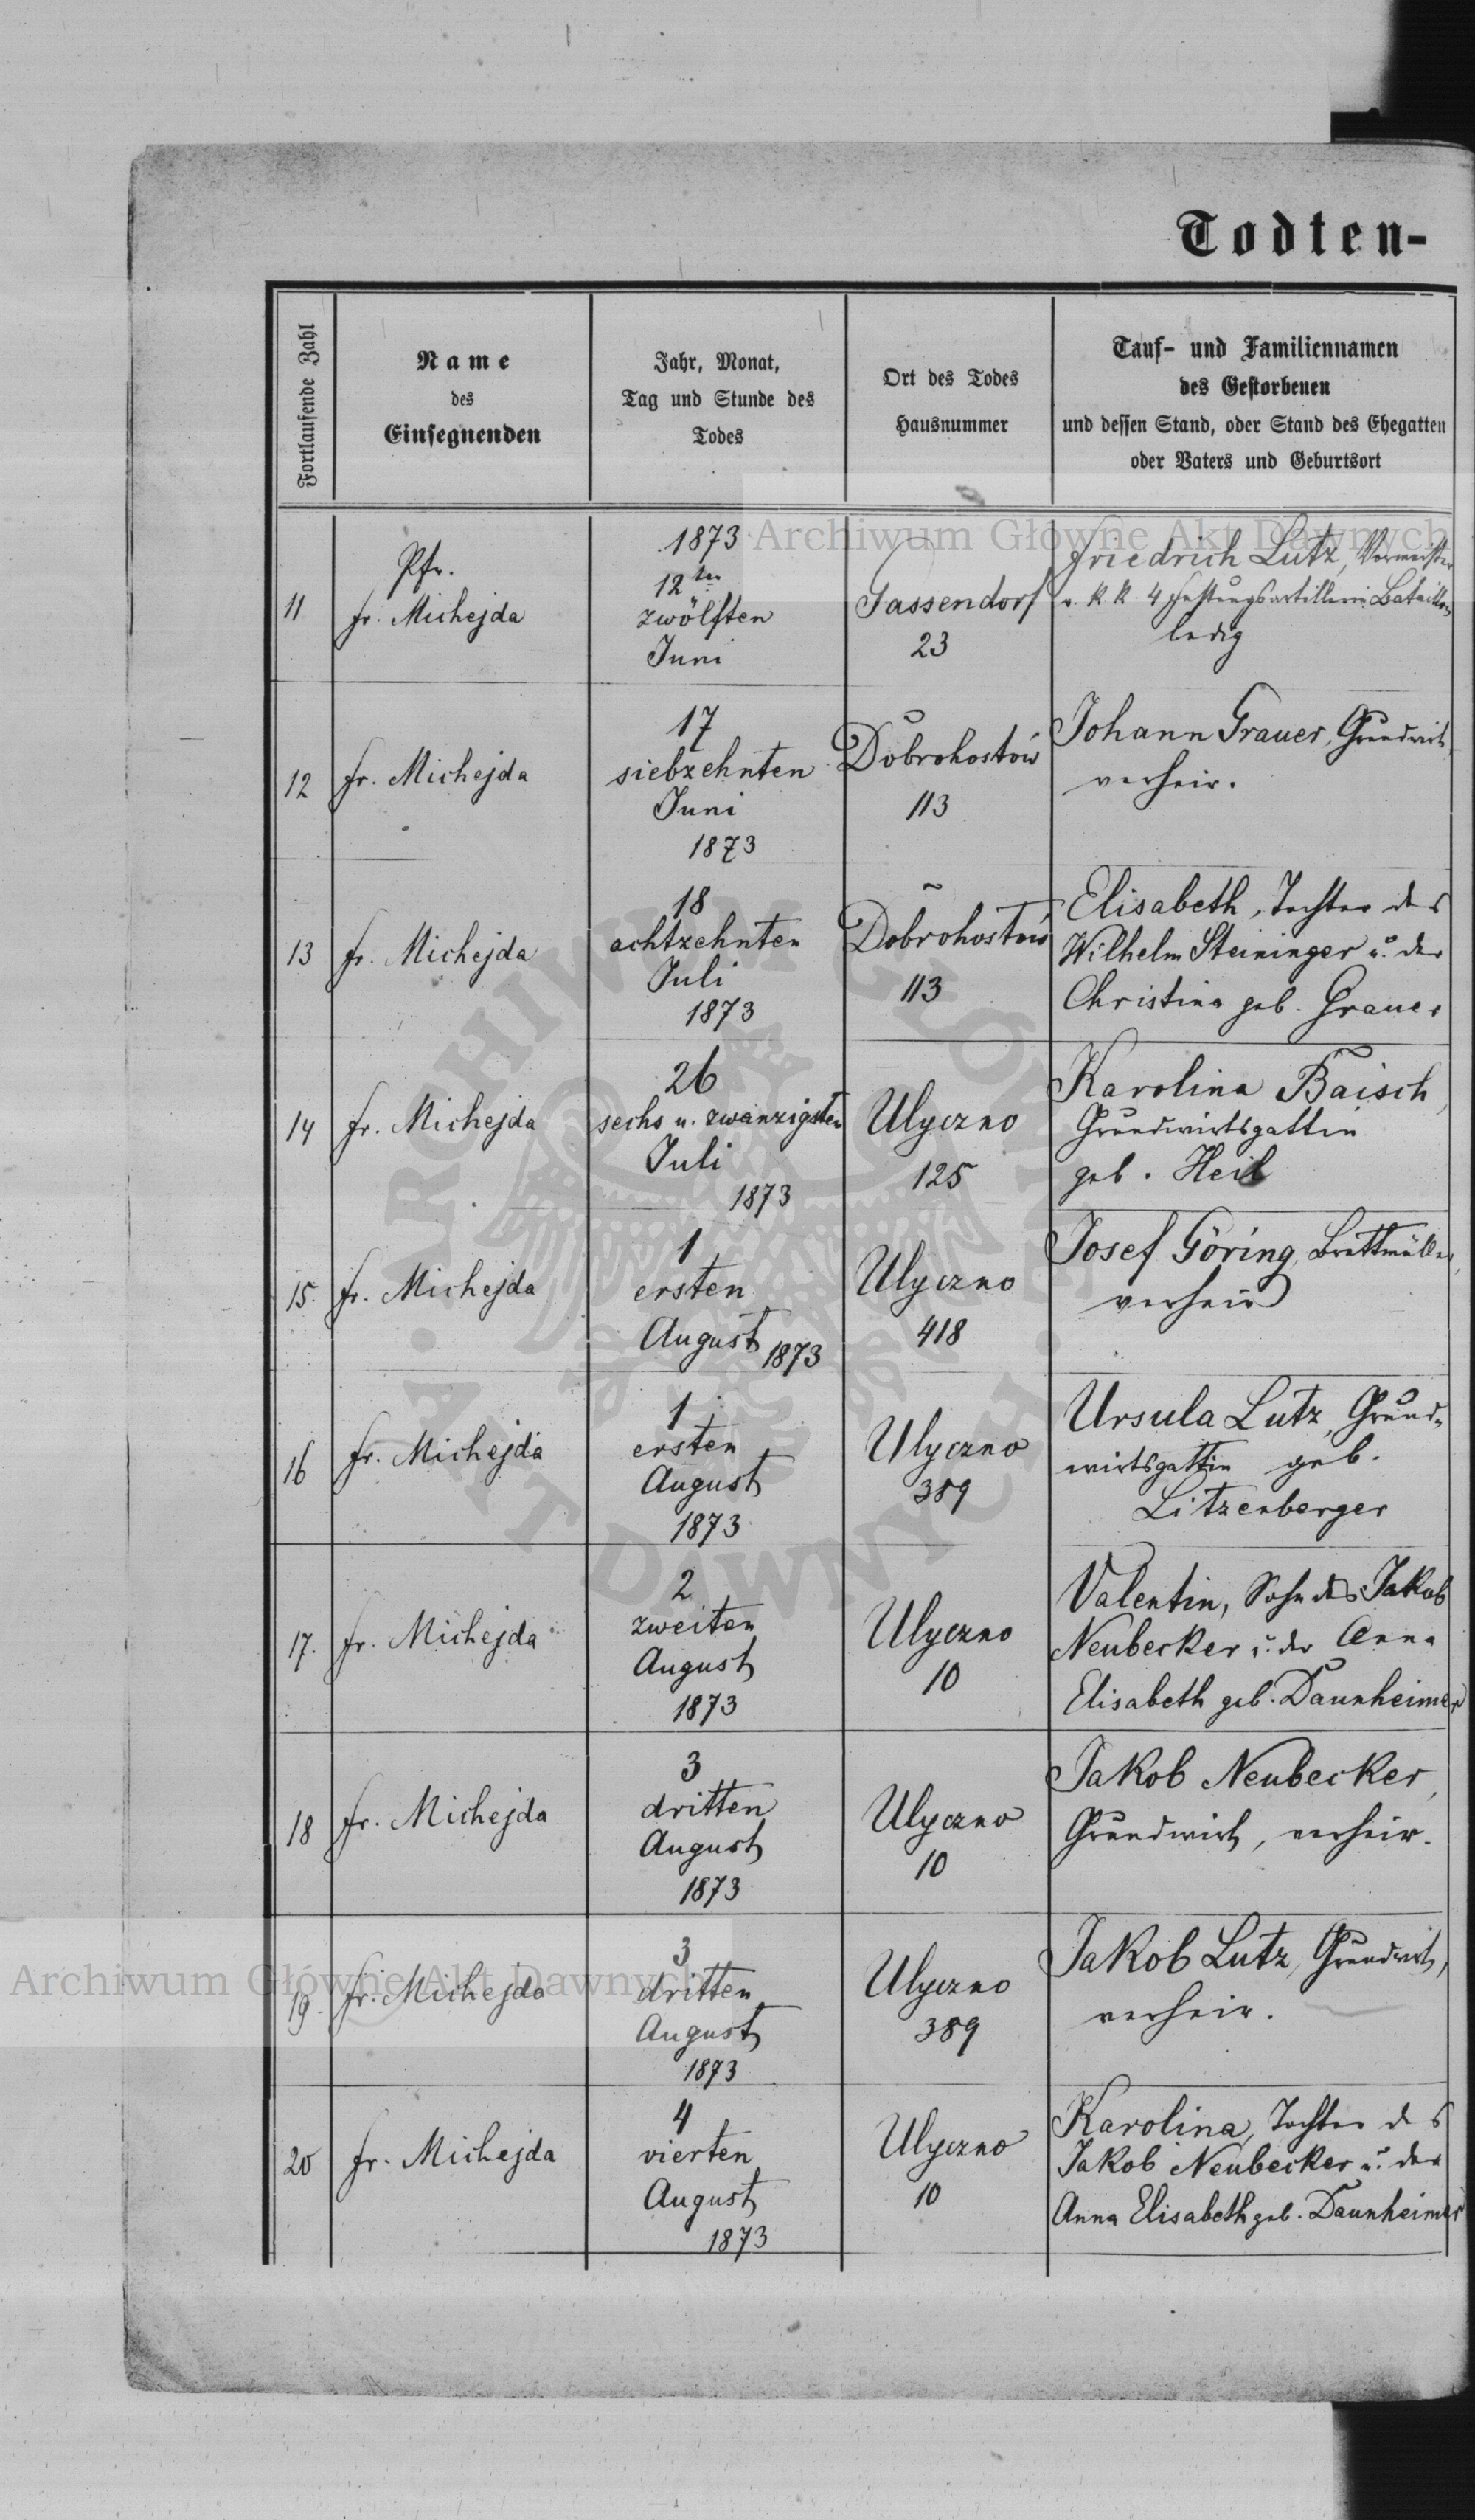 Todten-
Fortlaufende Zahl
Name
des
Einsegnenden
Jahr, Monat,
Tag und Stunde des
Todes
Ort des Todes
Hausnummer
Tauf- und Familiennamen
des Gestorbenen
und dessen Stand, oder Stand des Ehegatten
oder Vaters und Geburtsort
11
Pfr.
fr. Michejda
1873
12ten
zwölften
Juni
Gassendorf
23
Friedrich Lutz, Vormeister
v. K. K. 4 Festungsartillerie Bataillon
ledig
12
fr. Michejda
17
siebzehnten
Juni
1873
Dobrohostów
113
Johann Grauer, Grundwirt
verheir.
13
fr. Michejda
18
achtzehnten
Juli
1873
Dobrohostów
113
Elisabeth, Tochter des
Wilhelm Steininger u. der
Christina geb. Grauer
14
fr. Michejda
26
sechs u. zwanzigsten
Juli
1873
Ulyczno
125
Karolina Baisch,
Grundwirtsgattin
geb. Heil
15.
fr. Michejda
1
ersten
August 1873
Ulyczno
418
Josef Göring, Brettmüller,
verheir
16
fr. Michejda
1
ersten
August
1873
Ulyczno
389
Ursula Lutz, Grund-
wirtsgattin geb.
Litzenberger
17.
fr. Michejda
2
zweiten
August
1873
Ulyczno
10
Valentin, Sohn des Jakob
Neubecker u. der Anna
Elisabeth geb. Daunheimer
18
fr. Michejda
3
dritten
August
1873
Ulyczno
10
Jakob Neubecker,
Grundwirt, verheir.
19.
fr. Michejda
3
dritten
August
1873
Ulyczno
389
Jakob Lutz, Grundwirt,
verheir.
20
fr. Michejda
4
vierten
August
1873
Ulyczno
10
Karolina, Tochter des
Jakob Neubecker u. der
Anna Elisabeth geb. Daunheimer
Archiwum Główne Akt Dawnych
Archiwum Główne Akt Dawnych
ARCHIWUM GŁÓWNE
AKT DAWNYCH